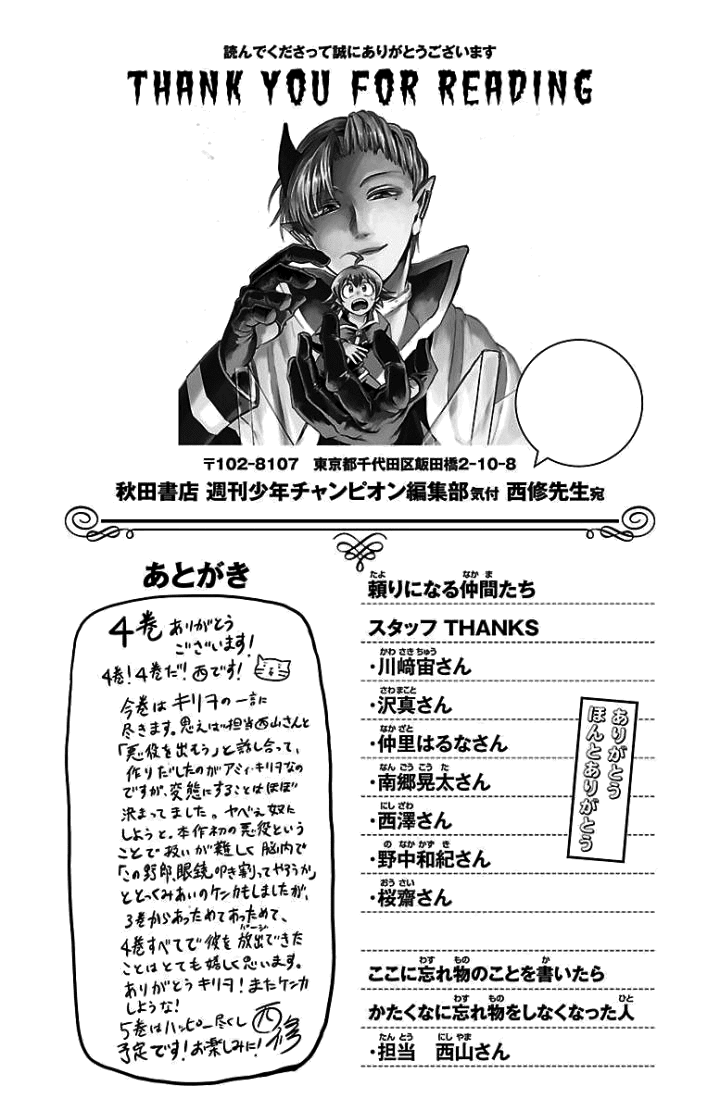 読んでくださって誠にありがとうございます
THANK YOU FOR READING
〒102-8107　東京都千代田区飯田橋2-10-8
秋田書店 週刊少年チャンピオン編集部気付 西修先生宛
あとがき
4巻ありがとう
ございます!
4巻!4巻だ!西です!
今巻はキリヲの一言に
尽きます。思えば担当西山さんと
「悪役を出そう」と話し合って、
作りだしたのがアミィ・キリヲなの
ですが、変態にすることはほぼ
決まってました。ヤベぇ奴に
しようと。本作初の悪役という
ことで扱いが難しく脳内で
「この野郎、眼鏡叩き割ってやろうか」
ととっくみあいのケンカもしましたが、
3巻からあっためてあっためて、
4巻すべてで彼を放出できた
パージ
ことはとても嬉しく思います。
ありがとうキリヲ!またケンカ
しような!
5巻はハッピー尽くし
予定です!お楽しみに!
西修
たよ なかま
頼りになる仲間たち
スタッフ THANKS
かわさきちゅう
・川﨑宙さん
さわまこと
・沢真さん
なかざと
・仲里はるなさん
なんごうこうた
・南郷晃太さん
にしざわ
・西澤さん
のなかかずき
・野中和紀さん
おうさい
・桜齋さん
ありがとう
ほんとありがとう
わす もの か
ここに忘れ物のことを書いたら
わす もの ひと
かたくなに忘れ物をしなくなった人
たんとう にしやま
・担当　西山さん